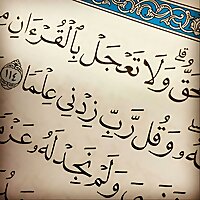 حَقُّ ۗ وَلَا تَعْجَلْ بِٱلْقُرْءَانِ مِ
ـهُۥ ۖ وَقُل رَّبِّ زِدْنِى عِلْمًا ١١٤
ـسِىَ وَلَمْ نَجِدْ لَهُۥ عَزْمـ